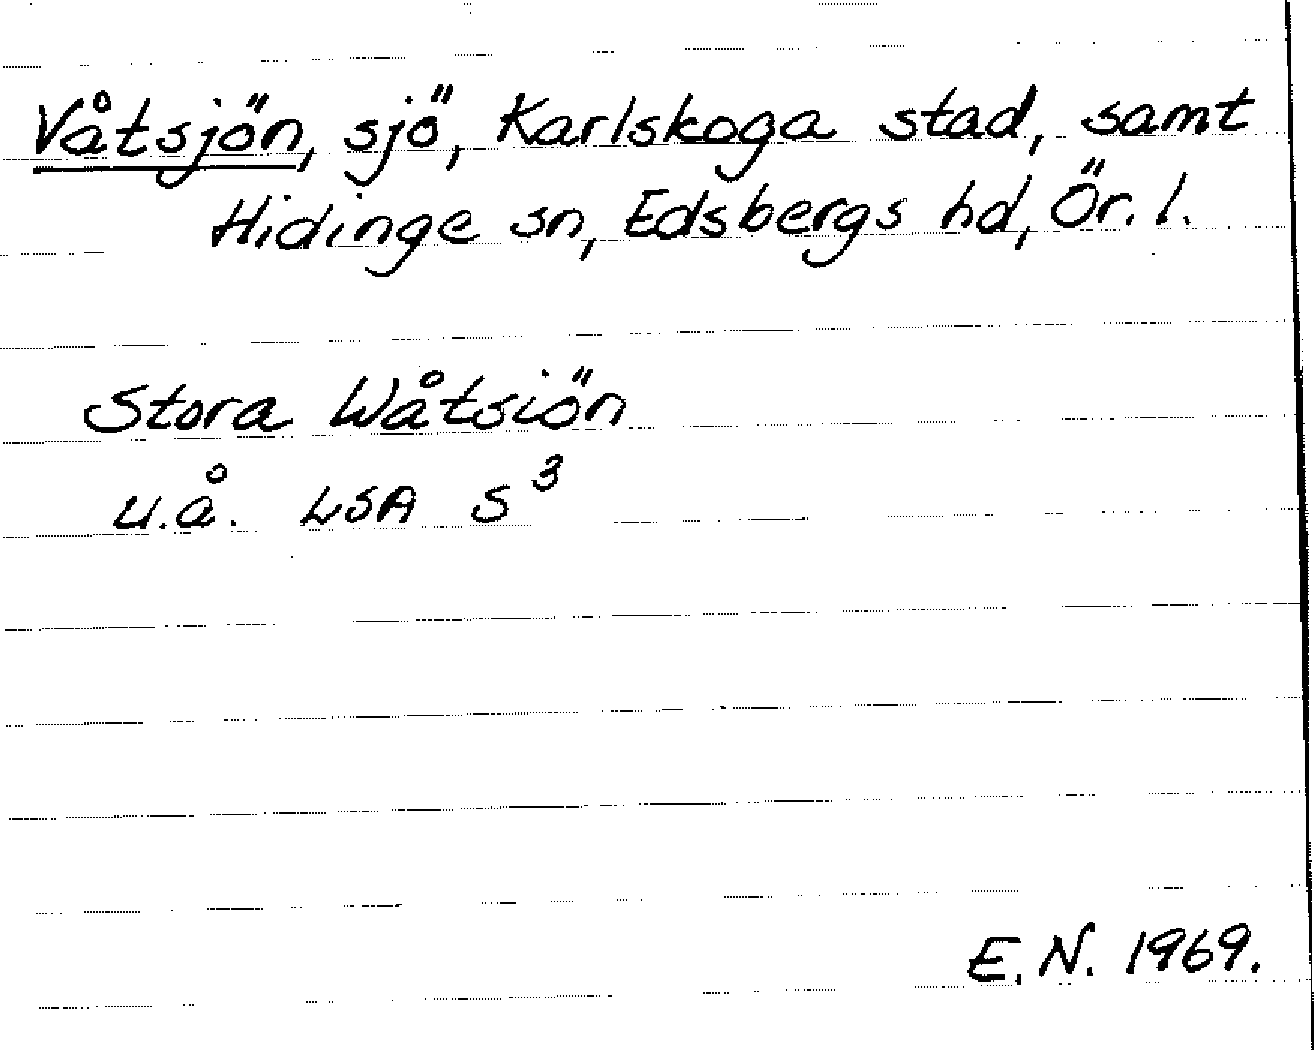 Våtsjön, sjö, Karlskoga stad, samt
Hidinge sn, Edsbergs hd, Ör. l.
Stora Wåtsiön
u.å. LSA S³
E. N. 1969.